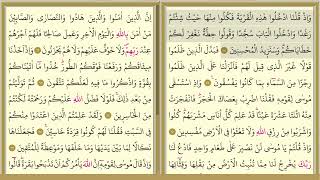 وَإِذْ قُلْنَا ادْخُلُوا هٰذِهِ الْقَرْيَةَ فَكُلُوا مِنْهَا حَيْثُ شِئْتُمْ
رَغَدًا وَادْخُلُوا الْبَابَ سُجَّدًا وَقُولُوا حِطَّةٌ نَغْفِرْ لَكُمْ
خَطَايَاكُمْ وَسَنَزِيدُ الْمُحْسِنِينَ فَبَدَّلَ الَّذِينَ ظَلَمُوا
قَوْلًا غَيْرَ الَّذِي قِيلَ لَهُمْ فَأَنْزَلْنَا عَلَى الَّذِينَ ظَلَمُوا
رِجْزًا مِنَ السَّمَاءِ بِمَا كَانُوا يَفْسُقُونَ وَإِذِ اسْتَسْقَى
مُوسَى لِقَوْمِهِ فَقُلْنَا اضْرِبْ بِعَصَاكَ الْحَجَرَ فَانْفَجَرَتْ
مِنْهُ اثْنَتَا عَشْرَةَ عَيْنًا قَدْ عَلِمَ كُلُّ أُنَاسٍ مَشْرَبَهُمْ كُلُوا
وَاشْرَبُوا مِنْ رِزْقِ اللّٰهِ وَلَا تَعْثَوْا فِي الْأَرْضِ مُفْسِدِينَ
وَإِذْ قُلْتُمْ يَا مُوسَى لَنْ نَصْبِرَ عَلَى طَعَامٍ وَاحِدٍ فَادْعُ لَنَا
رَبَّكَ يُخْرِجْ لَنَا مِمَّا تُنْبِتُ الْأَرْضُ مِنْ بَقْلِهَا وَقِثَّائِهَا
إِنَّ الَّذِينَ آمَنُوا وَالَّذِينَ هَادُوا وَالنَّصَارَى وَالصَّابِئِينَ
مَنْ آمَنَ بِاللّٰهِ وَالْيَوْمِ الْآخِرِ وَعَمِلَ صَالِحًا فَلَهُمْ أَجْرُهُمْ
عِنْدَ رَبِّهِمْ وَلَا خَوْفٌ عَلَيْهِمْ وَلَا هُمْ يَحْزَنُونَ
وَإِذْ أَخَذْنَا مِيثَاقَكُمْ وَرَفَعْنَا فَوْقَكُمُ الطُّورَ خُذُوا مَا آتَيْنَاكُمْ
بِقُوَّةٍ وَاذْكُرُوا مَا فِيهِ لَعَلَّكُمْ تَتَّقُونَ ثُمَّ تَوَلَّيْتُمْ
مِنْ بَعْدِ ذٰلِكَ فَلَوْلَا فَضْلُ اللّٰهِ عَلَيْكُمْ وَرَحْمَتُهُ لَكُنْتُمْ
مِنَ الْخَاسِرِينَ وَلَقَدْ عَلِمْتُمُ الَّذِينَ اعْتَدَوْا مِنْكُمْ
فِي السَّبْتِ فَقُلْنَا لَهُمْ كُونُوا قِرَدَةً خَاسِئِينَ فَجَعَلْنَاهَا
نَكَالًا لِمَا بَيْنَ يَدَيْهَا وَمَا خَلْفَهَا وَمَوْعِظَةً لِلْمُتَّقِينَ
وَإِذْ قَالَ مُوسَى لِقَوْمِهِ إِنَّ اللّٰهَ يَأْمُرُكُمْ أَنْ تَذْبَحُوا بَقَرَةً قَالُوا